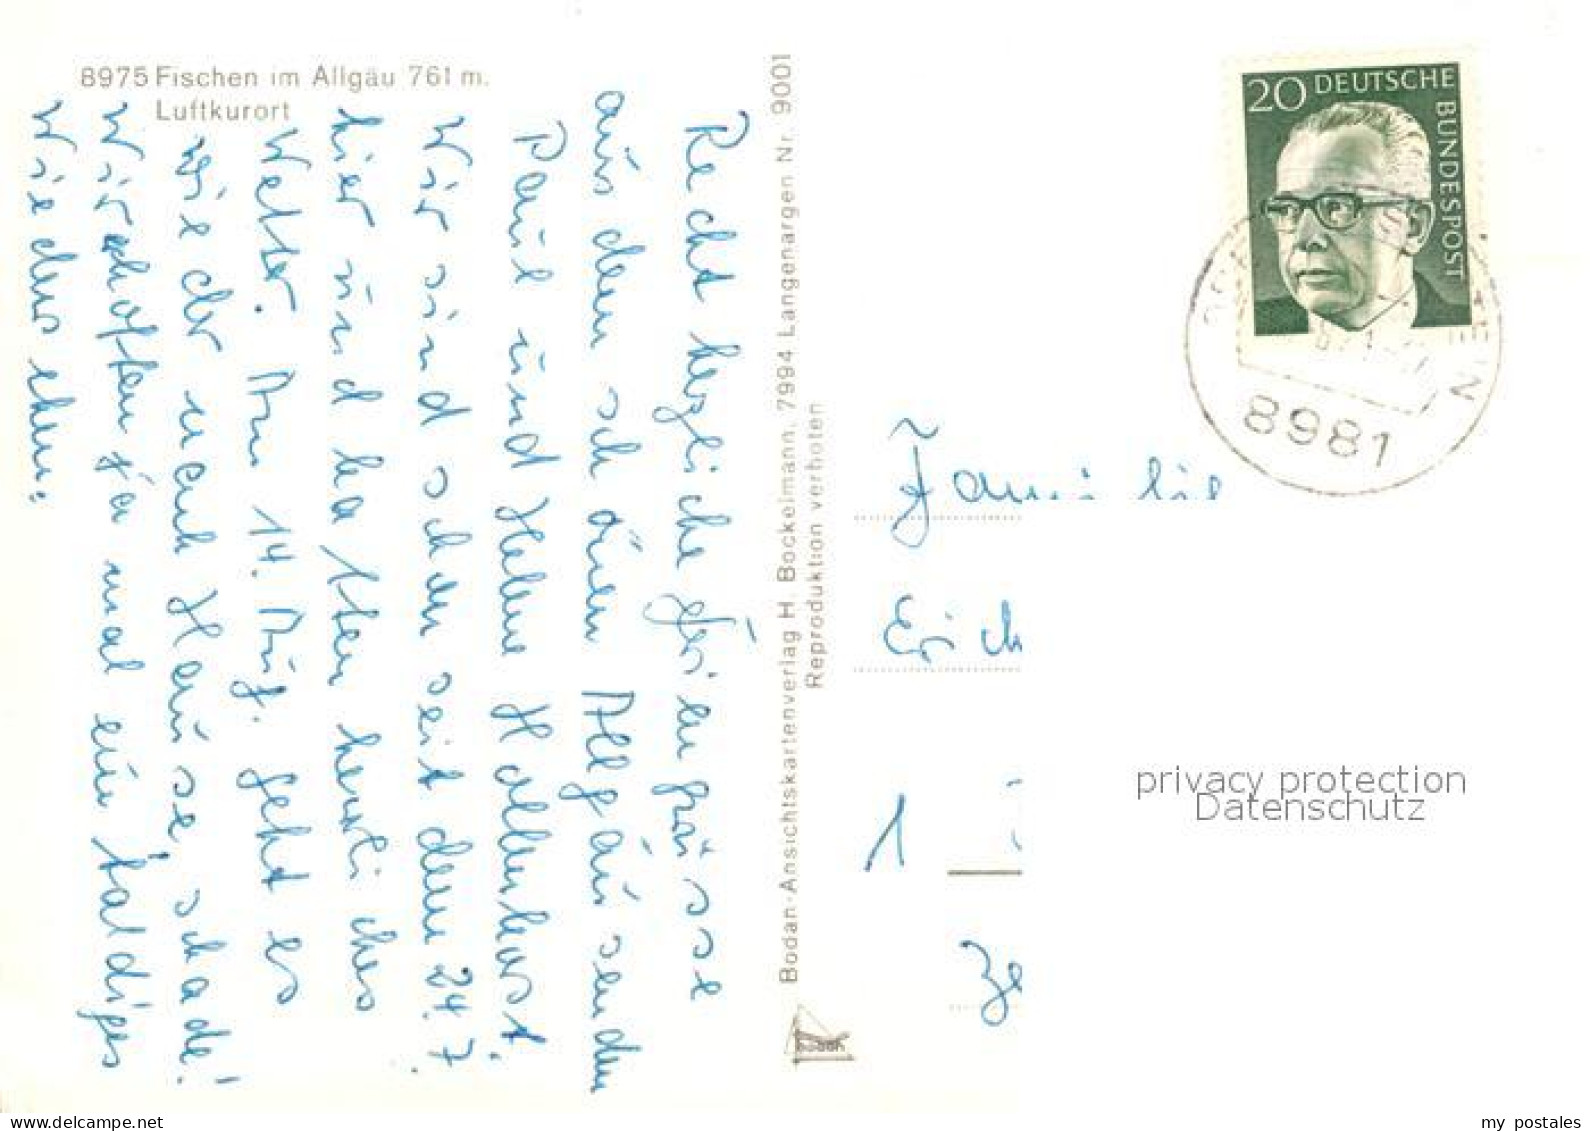 8975 Fischen im Allgäu 761 m.
Luftkurort
Recht herzliche Feriengrüsse
aus dem schönen Allgäu senden
Paul und Helene
Wir sind schon seit dem 24. 7.
hier und hatten herrliches
Wetter. Am 14. Aug. geht es
wieder nach Hause, schade!
Wir hofften ja mal ein baldiges
Wiedersehen.
Bodan-Ansichtskartenverlag H. Bockelmann, 7994 Langenargen Nr. 9001
Reproduktion verboten
20 DEUTSCHE
BUNDESPOST
8981
Familie
Erich
1
privacy protection
Datenschutz
my postales